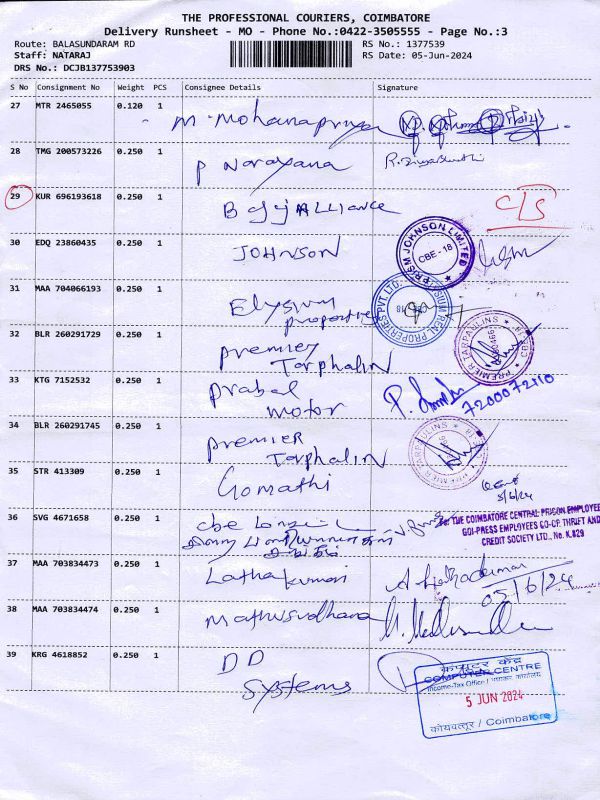 THE PROFESSIONAL COURIERS, COIMBATORE
Delivery Runsheet - MO - Phone No.:0422-3505555 - Page No.:3
Route: BALASUNDARAM RD
Staff: NATARAJ
DRS No.: DCJB137753903
RS No.: 1377539
RS Date: 05-Jun-2024
S No Consignment No Weight PCS Consignee Details Signature
27 MTR 2465055 0.120 1
M. Mohanapriya
28 TMG 200573226 0.250 1
P Narayana
29 KUR 696193618 0.250 1
Bajaj Alliance
C/S
30 EDQ 23860435 0.250 1
JOHNSON
PRISM JOHNSON LIMITED
CBE - 18
31 MAA 704066193 0.250 1
Elysium
properties
ELYSIUM REAL PROPERTIES PVT. LTD.
32 BLR 260291729 0.250 1
premier
Tarphalin
PREMIER TARPAULINS
33 KTG 7152532 0.250 1
prabal
motor
7200072110
34 BLR 260291745 0.250 1
premier
Tarphalin
35 STR 413309 0.250 1
Gomathi
5/6/24
36 SVG 4671658 0.250 1
cbe
For THE COIMBATORE CENTRAL PRISON EMPLOYEE
GOI-PRESS EMPLOYEES CO-OP. THRIFT AND
CREDIT SOCIETY LTD., No. K.829
37 MAA 703834473 0.250 1
Lathakumari
05/6/24
38 MAA 703834474 0.250 1
Mathusudhana
39 KRG 4618852 0.250 1
DD
Systems
कंप्यूटर केंद्र
COMPUTER CENTRE
Income-Tax Office / आयकर कार्यालय
5 JUN 2024
कोयंबत्तूर / Coimbatore